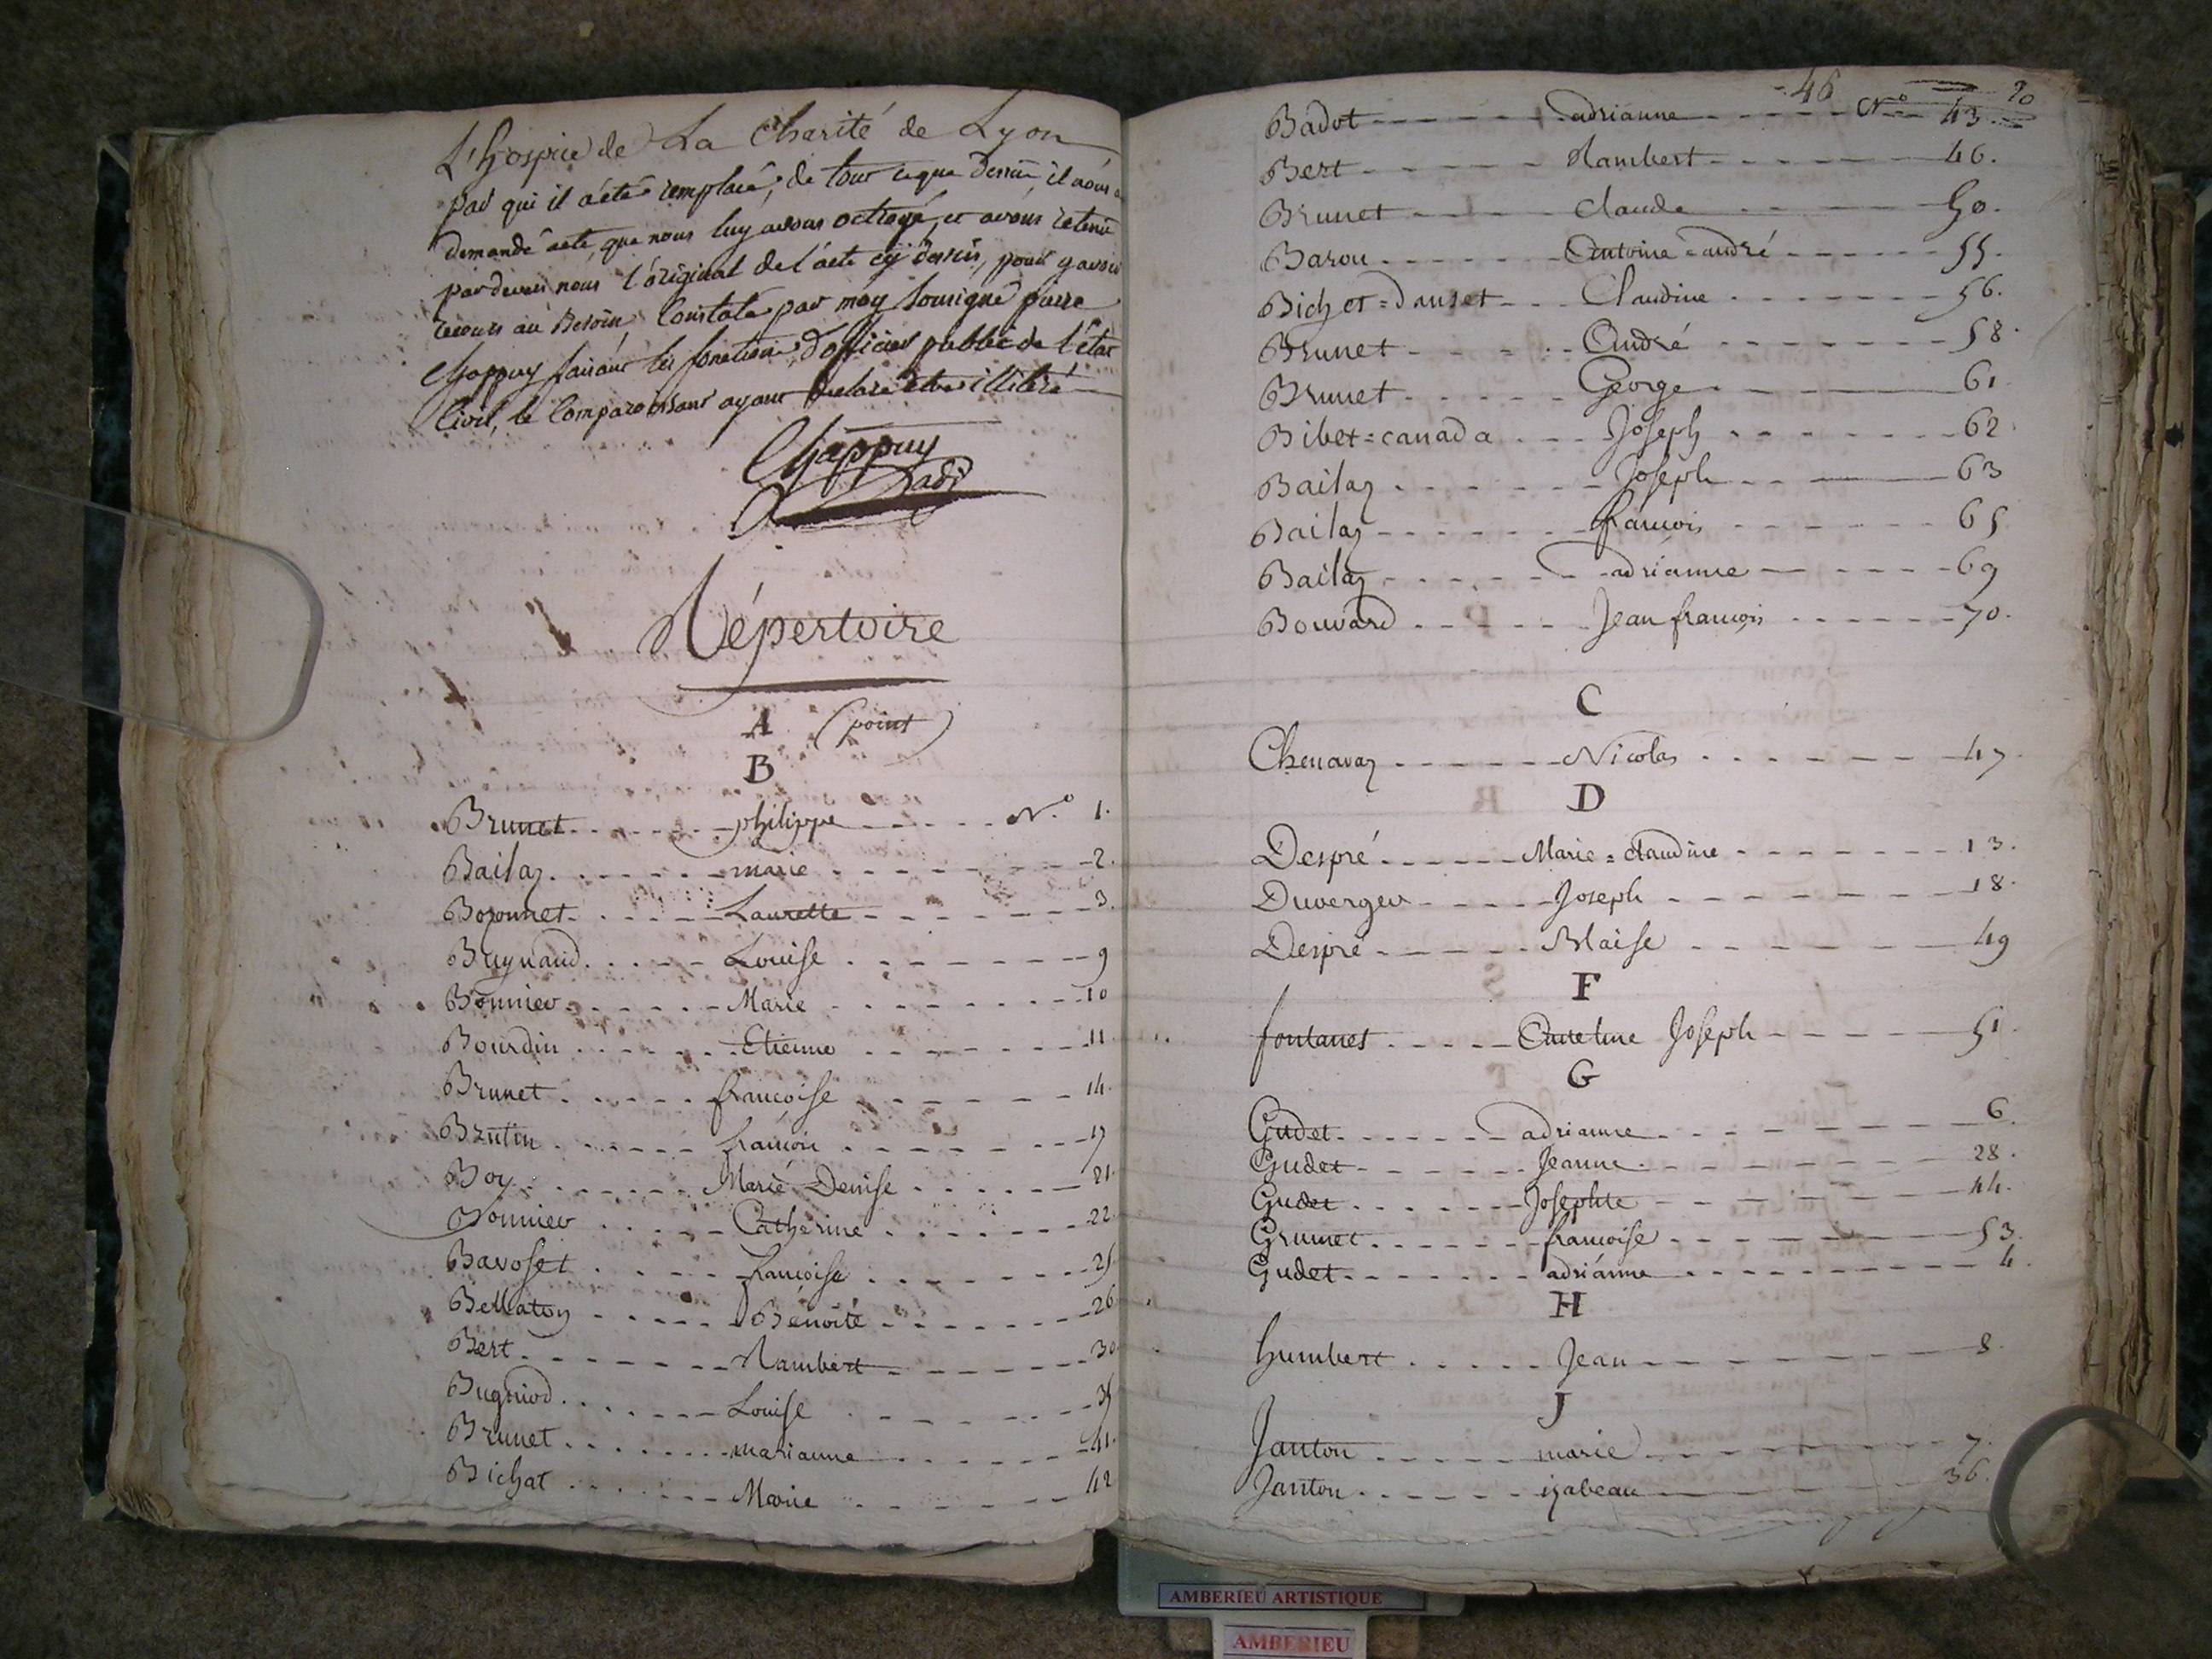 L'hospice de La Charité de Lyon
par qui il a été remplacé, de tout ce que dessus il nous a
demandé acte, que nous luy avons octroyé, et avons retenu
pardevers nous l'original de l'acte cÿ dessus, pour y avoir
recours au Besoin, Constaté par moy soussigné pierre
Chappuy faisant les fonctions d'officier public de l'état
Civil, le Comparoissant ayant declaré être illitéré
Chappuy
adj
Répertoire
A (point)
B
Brunet philippe N.o 1.
Bailaz marie 2.
Bozonnet Laurette 3.
Buynand Louise 9
Bonnier Marie 10
Bourdin Etienne 11
Brunet francoise 14.
Brutin francois 17
Boy Marie Denise 21.
Bonnier Catherine 22.
Bavoset francoise 25
Bellaton Bénoite 26
Bert Rambert 30
Bugniod Louise 35
Brunet marianne 41.
Bichat Marie 42
46 20
Badot adrianne No 43
Bert Rambert 46.
Brunet claude 50.
Barou Antoine=andré 55.
Bichet=danset Claudine 56.
Brunet André 58.
Brunet George 61
Bibet=canada Joseph 62
Bailaz Joseph 63
Bailaz francois 65
Bailaz adrianne 69
Bouvard Jean francois 70.
C
Chenavaz Nicolas 47.
D
Despré Marie=claudine 13.
Duverger Joseph 18.
Despré Blaise 49
F
fontanet Anselme Joseph 51.
G
Gudet adrianne 6.
Gudet Jeanne 28.
Gudet Josephte 44.
Grumet francoise 53.
Gudet adrianne 4.
H
humbert Jean 8.
J
Janton marie 7.
Janton izabeau 36.
AMBERIEU ARTISTIQUE
AMBERIEU